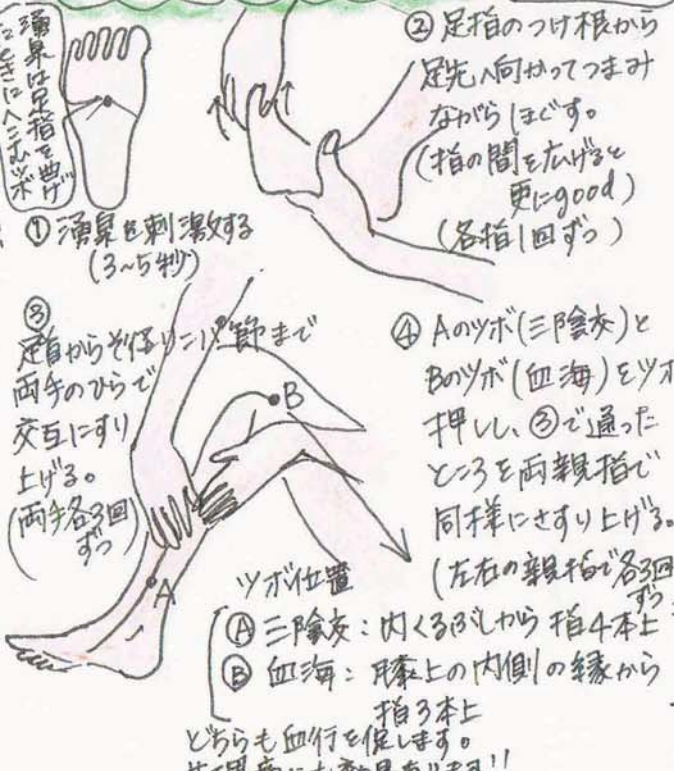 湧泉は足指を曲げ
たときにへこむツボ
① 湧泉を刺激する
(3~5秒)
② 足指のつけ根から
足先へ向かってつまみ
ながらほぐす。
(指の間を広げると
更にgood)
(各指1回ずつ)
③
足首からそ径リンパ節まで
両手のひらで
交互にすり
上げる。
(両手各3回
ずつ)
A
B
④ Aのツボ(三陰交)と
Bのツボ(血海)をツボ
押しし、③で通った
ところを両親指で
同様にさすり上げる。
(左右の親指で各3回
ずつ
ツボ位置
Ⓐ 三陰交:内くるぶしから指4本上
Ⓑ 血海:膝上の内側の縁から
指3本上
どちらも血行を促します。